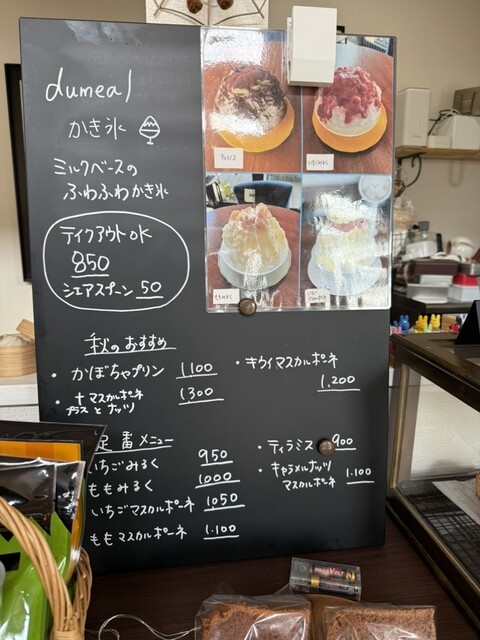 dumeal
かき氷
ミルクベースの
ふわふわかき氷
テイクアウトOK
850
シェアスプーン 50
秋のおすすめ
・かぼちゃプリン 1100
・+マスカルポーネ
プラスとナッツ 1300
・キウイマスカルポーネ
1,200
定番メニュー
いちごみるく 950
ももみるく 1000
いちごマスカルポーネ 1050
ももマスカルポーネ 1.100
・ティラミス 900
・キャラメルナッツ
マスカルポーネ 1.100